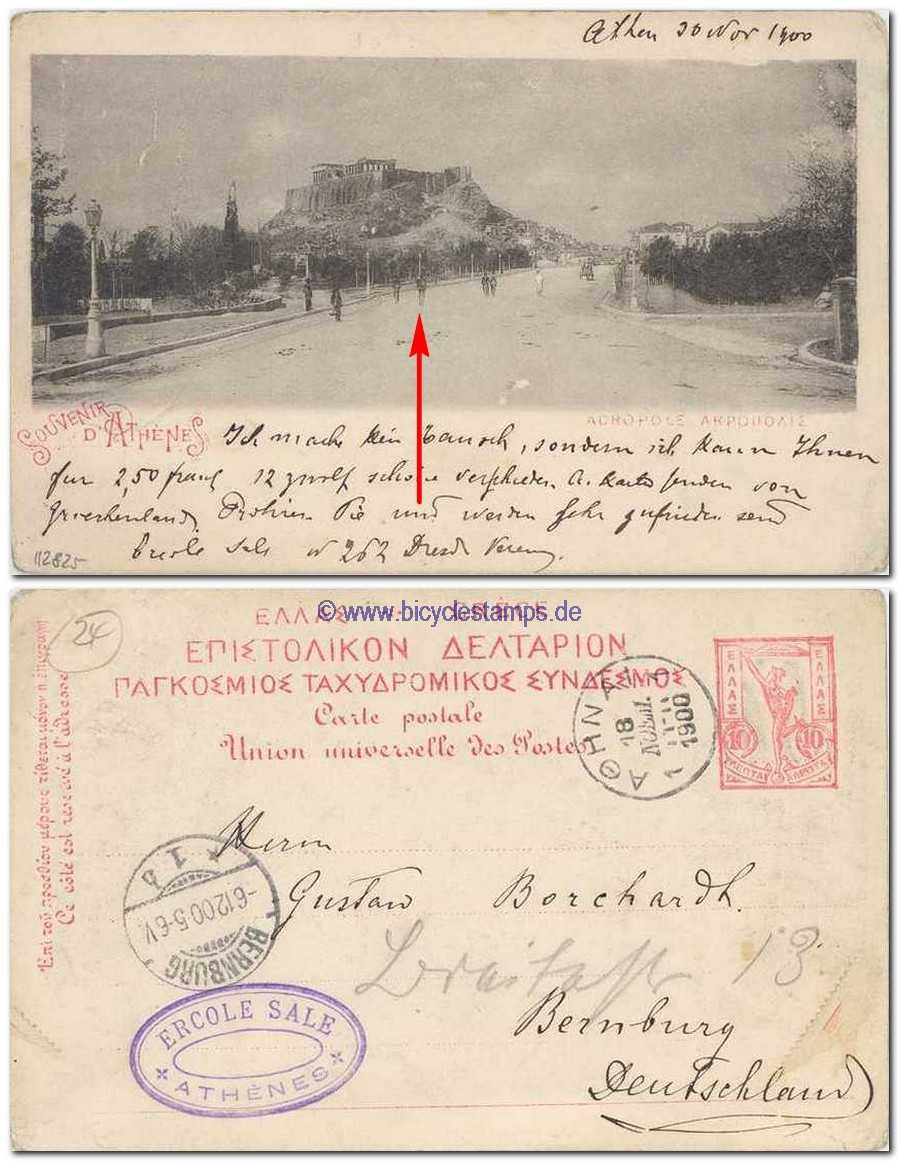 Athen 30 Nov 1900
SOUVENIR
D'ATHÈNES
ACROPOLE ΑΚΡΟΠΟΛΙΣ
Ich mache kein Tausch, sondern ich kann Ihnen
fur 2,50 franc 12 zwolf schöne verschieden A. Karte senden von
Griechenland. Probiren Sie und werden sehr zufrieden send
Ercole Sale No 262 Dresd
112825
24
© www.bicyclestamps.de
ΕΛΛΑΣ GRÈCE
ΕΠΙΣΤΟΛΙΚΟΝ ΔΕΛΤΑΡΙΟΝ
ΠΑΓΚΟΣΜΙΟΣ ΤΑΧΥΔΡΟΜΙΚΟΣ ΣΥΝΔΕΣΜΟΣ
Carte postale
Union universelle des Postes
Ἐπὶ τοῦ προσθίου μέρους τίθεται μόνον ἡ ἐπιγραφή
Ce côté est reservé à l'adresse
ΑΘΗΝΑΙ
18
ΝΟΕΜ.
1900
1
ΕΛΛΑΣ ΕΛΛΑΣ
10 10
ΛΕΠΤΑ ΛΕΠΤΑ
Herrn
Gustav Borchardt.
13
Bernburg
Deutschland
BERNBURG
-6.12.00.5-6V.
* 1 b
ERCOLE SALE
ATHÈNES